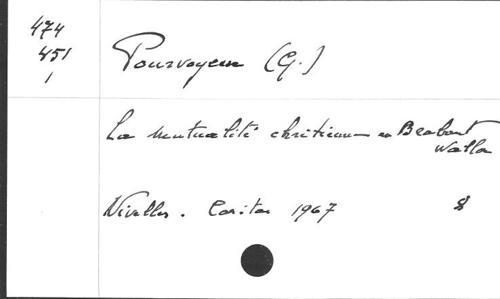 474
851
1
Pourvoyeur (G.)
La mutualité chrétienne en Brabant
Wallon
Nivelles. Caritas 1967 8